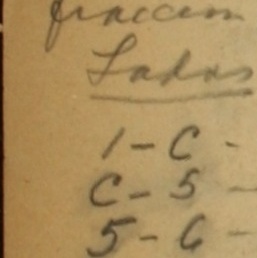 fraccion
Lados
1-C-
C-5-
5-6-